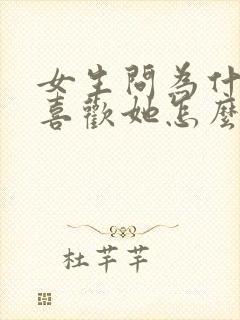 女生問為什
喜歡她怎麼
杜芊芊